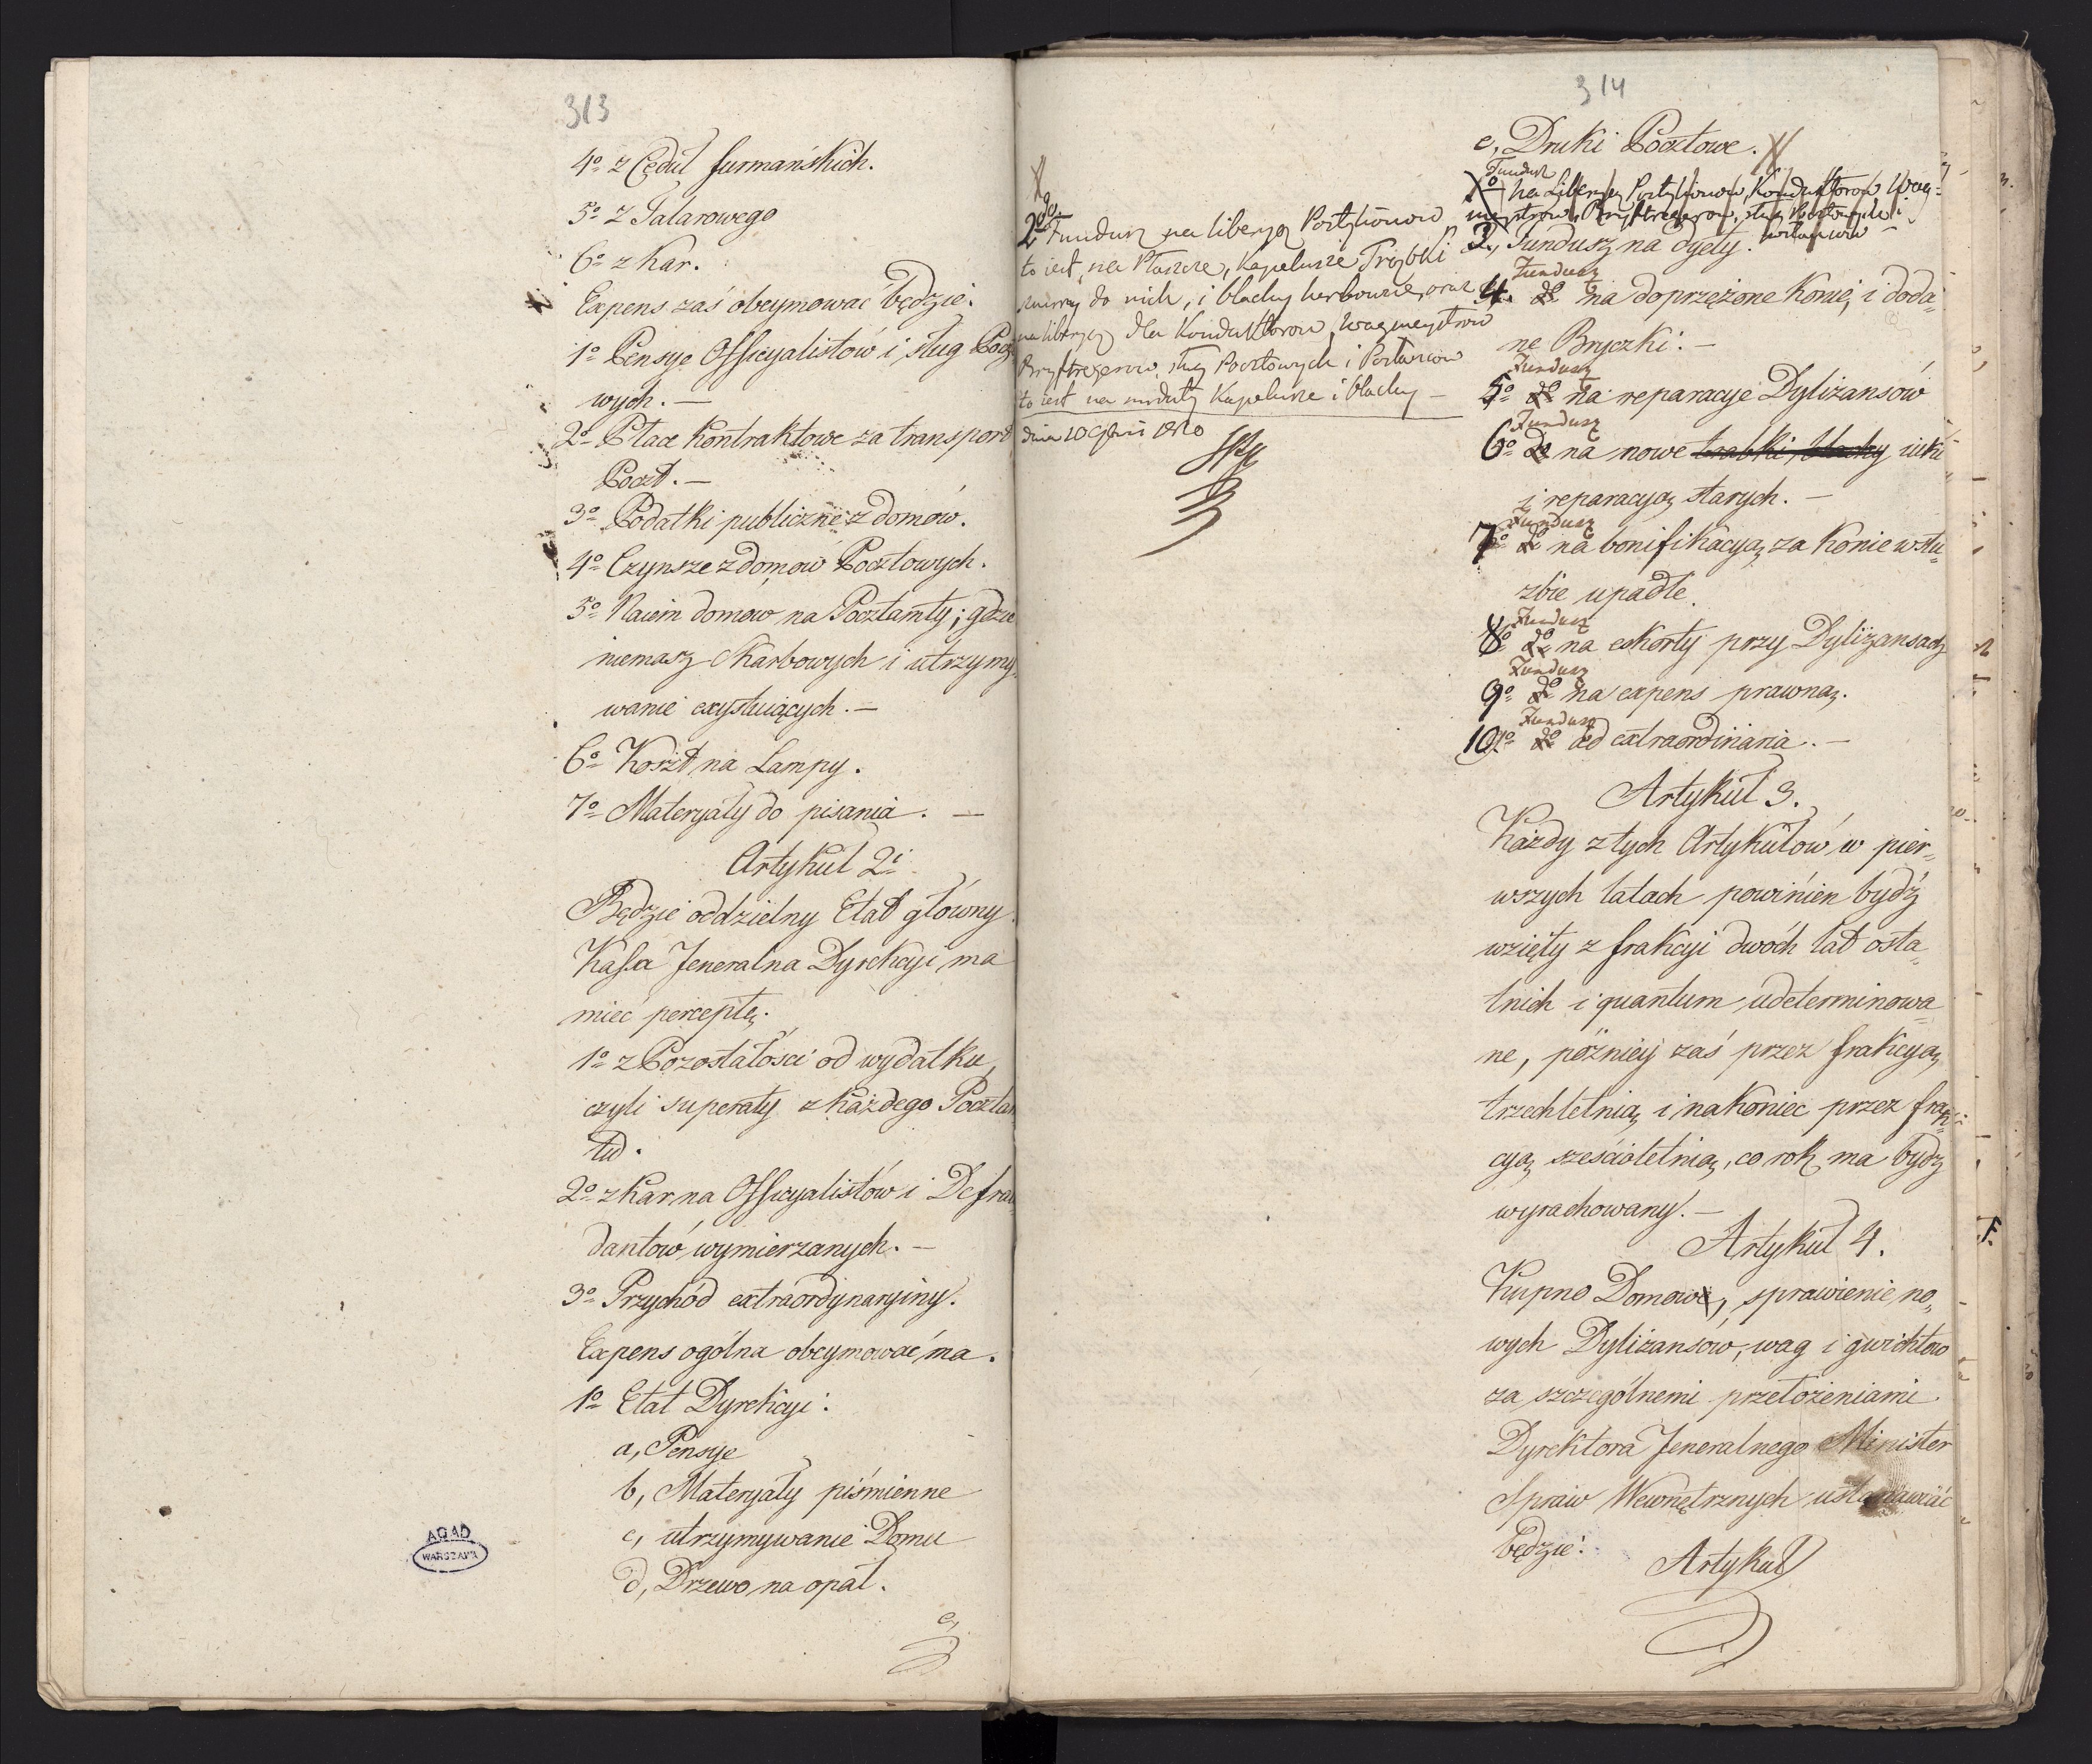 313
4º z Cęduł furmańskich.
5º z Talarowego
6º z Kar.
Expens zaś obeymować będzie:
1º Pensye Officyalistów i sług Pocz
wych. —
2º Płace kontraktowe za transport
Poczt. —
3º Podatki publiczne z domów.
4º Czynsze z domów Pocztowych.
5º Naiem domow na Pocztamty; gdzie
niemasz Skarbowych i utrzymy
wanie exystuiących. —
6º Koszt na Lampy.
7º Materyały do pisania. —
Artykuł 2i
Będzie oddzielny Etat główny
Kassa Jeneralna Dyrekcyi ma
mieć perceptę.
1º z Pozostałości od wydatku,
czyli superaty z każdego Pocztam
tu.
2º z kar na Officyalistów i Defrau
dantów wymierzanych. —
3º Przychód extraordynaryiny.
Expens ogólna obeymować ma.
1º Etat Dyrekcyi:
a, Pensye
b, Materyały piśmienne
c, utrzymywanie Domu
d, Drzewo na opał.
e,
AGAD
WARSZAWA
314
2do Fundusz na liberyą Postylionow
to iest, na Płaszcze, kapelusze Trąbki
sznury do nich, i blachy herbowne, oraz
na liberyą dla Konduktorow, Wagmeystrow
Bryftregerow, sług Pocztowych i Posłańcow
to iest na mundury Kapelusze i blachy —
dnia 10 1810
e, Druki Pocztowe.
Fundusz
na Liberyą Postylionow, Konduktorow Wag=
meystrow, Bryftregerow, sług Pocztowych i
Posłańcow —
3, Fundusz na dyety.
Fundusz
4. do na doprzężone Konie, i doda=
ne Bryczki: —
Fundusz
5º do na reparacye Dyliżansów
Fundusz
6º do na nowe trąbki, blachy iuki
i reparacyą starych. —
Fundusz
7º do na bonifikacyą za Konie w słu=
żbie upadłe.
Fundusz
8º do na eskorty przy Dyliżansach
Fundusz
9º do na expens prawną.
Fundusz
10º do ad extraordinaria. —
Artykuł 3.
Każdy z tych Artykułów w pier=
wszych latach powinien bydź
wzięty z frakcyi dwóch lat osta=
tnich i quantum udeterminowa=
ne, późniey zaś przez frakcyą
trzechletnią i nakoniec przez frak=
cyą sześcioletnią, co rok ma bydź
wyrachowany. —
Artykuł 4.
Kupno Domow, sprawienie no=
wych Dyliżansów, wag i gwichtow
za szczególnemi przełożeniami
Dyrektora Jeneralnego Minister
Spraw Wewnętrznych ustanawiać
będzie:
Artykuł